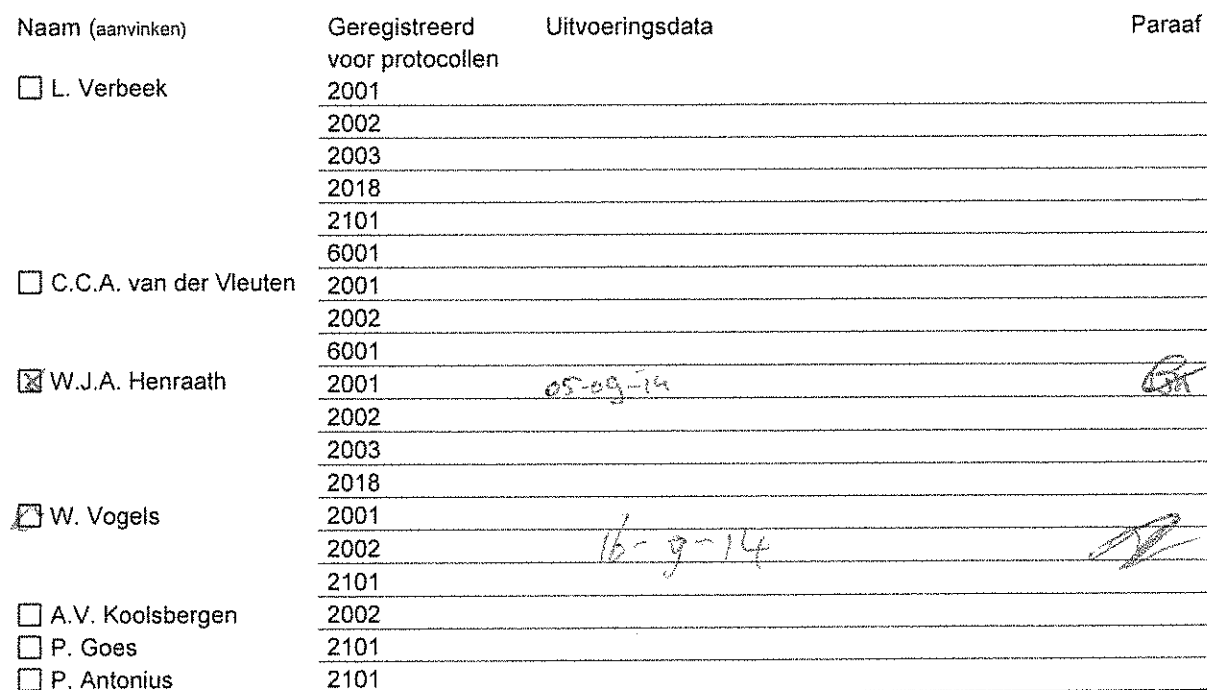 Naam (aanvinken) Geregistreerd Uitvoeringsdata Paraaf
voor protocollen
L. Verbeek 2001
2002
2003
2018
2101
6001
C.C.A. van der Vleuten 2001
2002
6001
W.J.A. Henraath 2001 05-09-14
2002
2003
2018
W. Vogels 2001
2002 16-9-14
2101
A.V. Koolsbergen 2002
P. Goes 2101
P. Antonius 2101